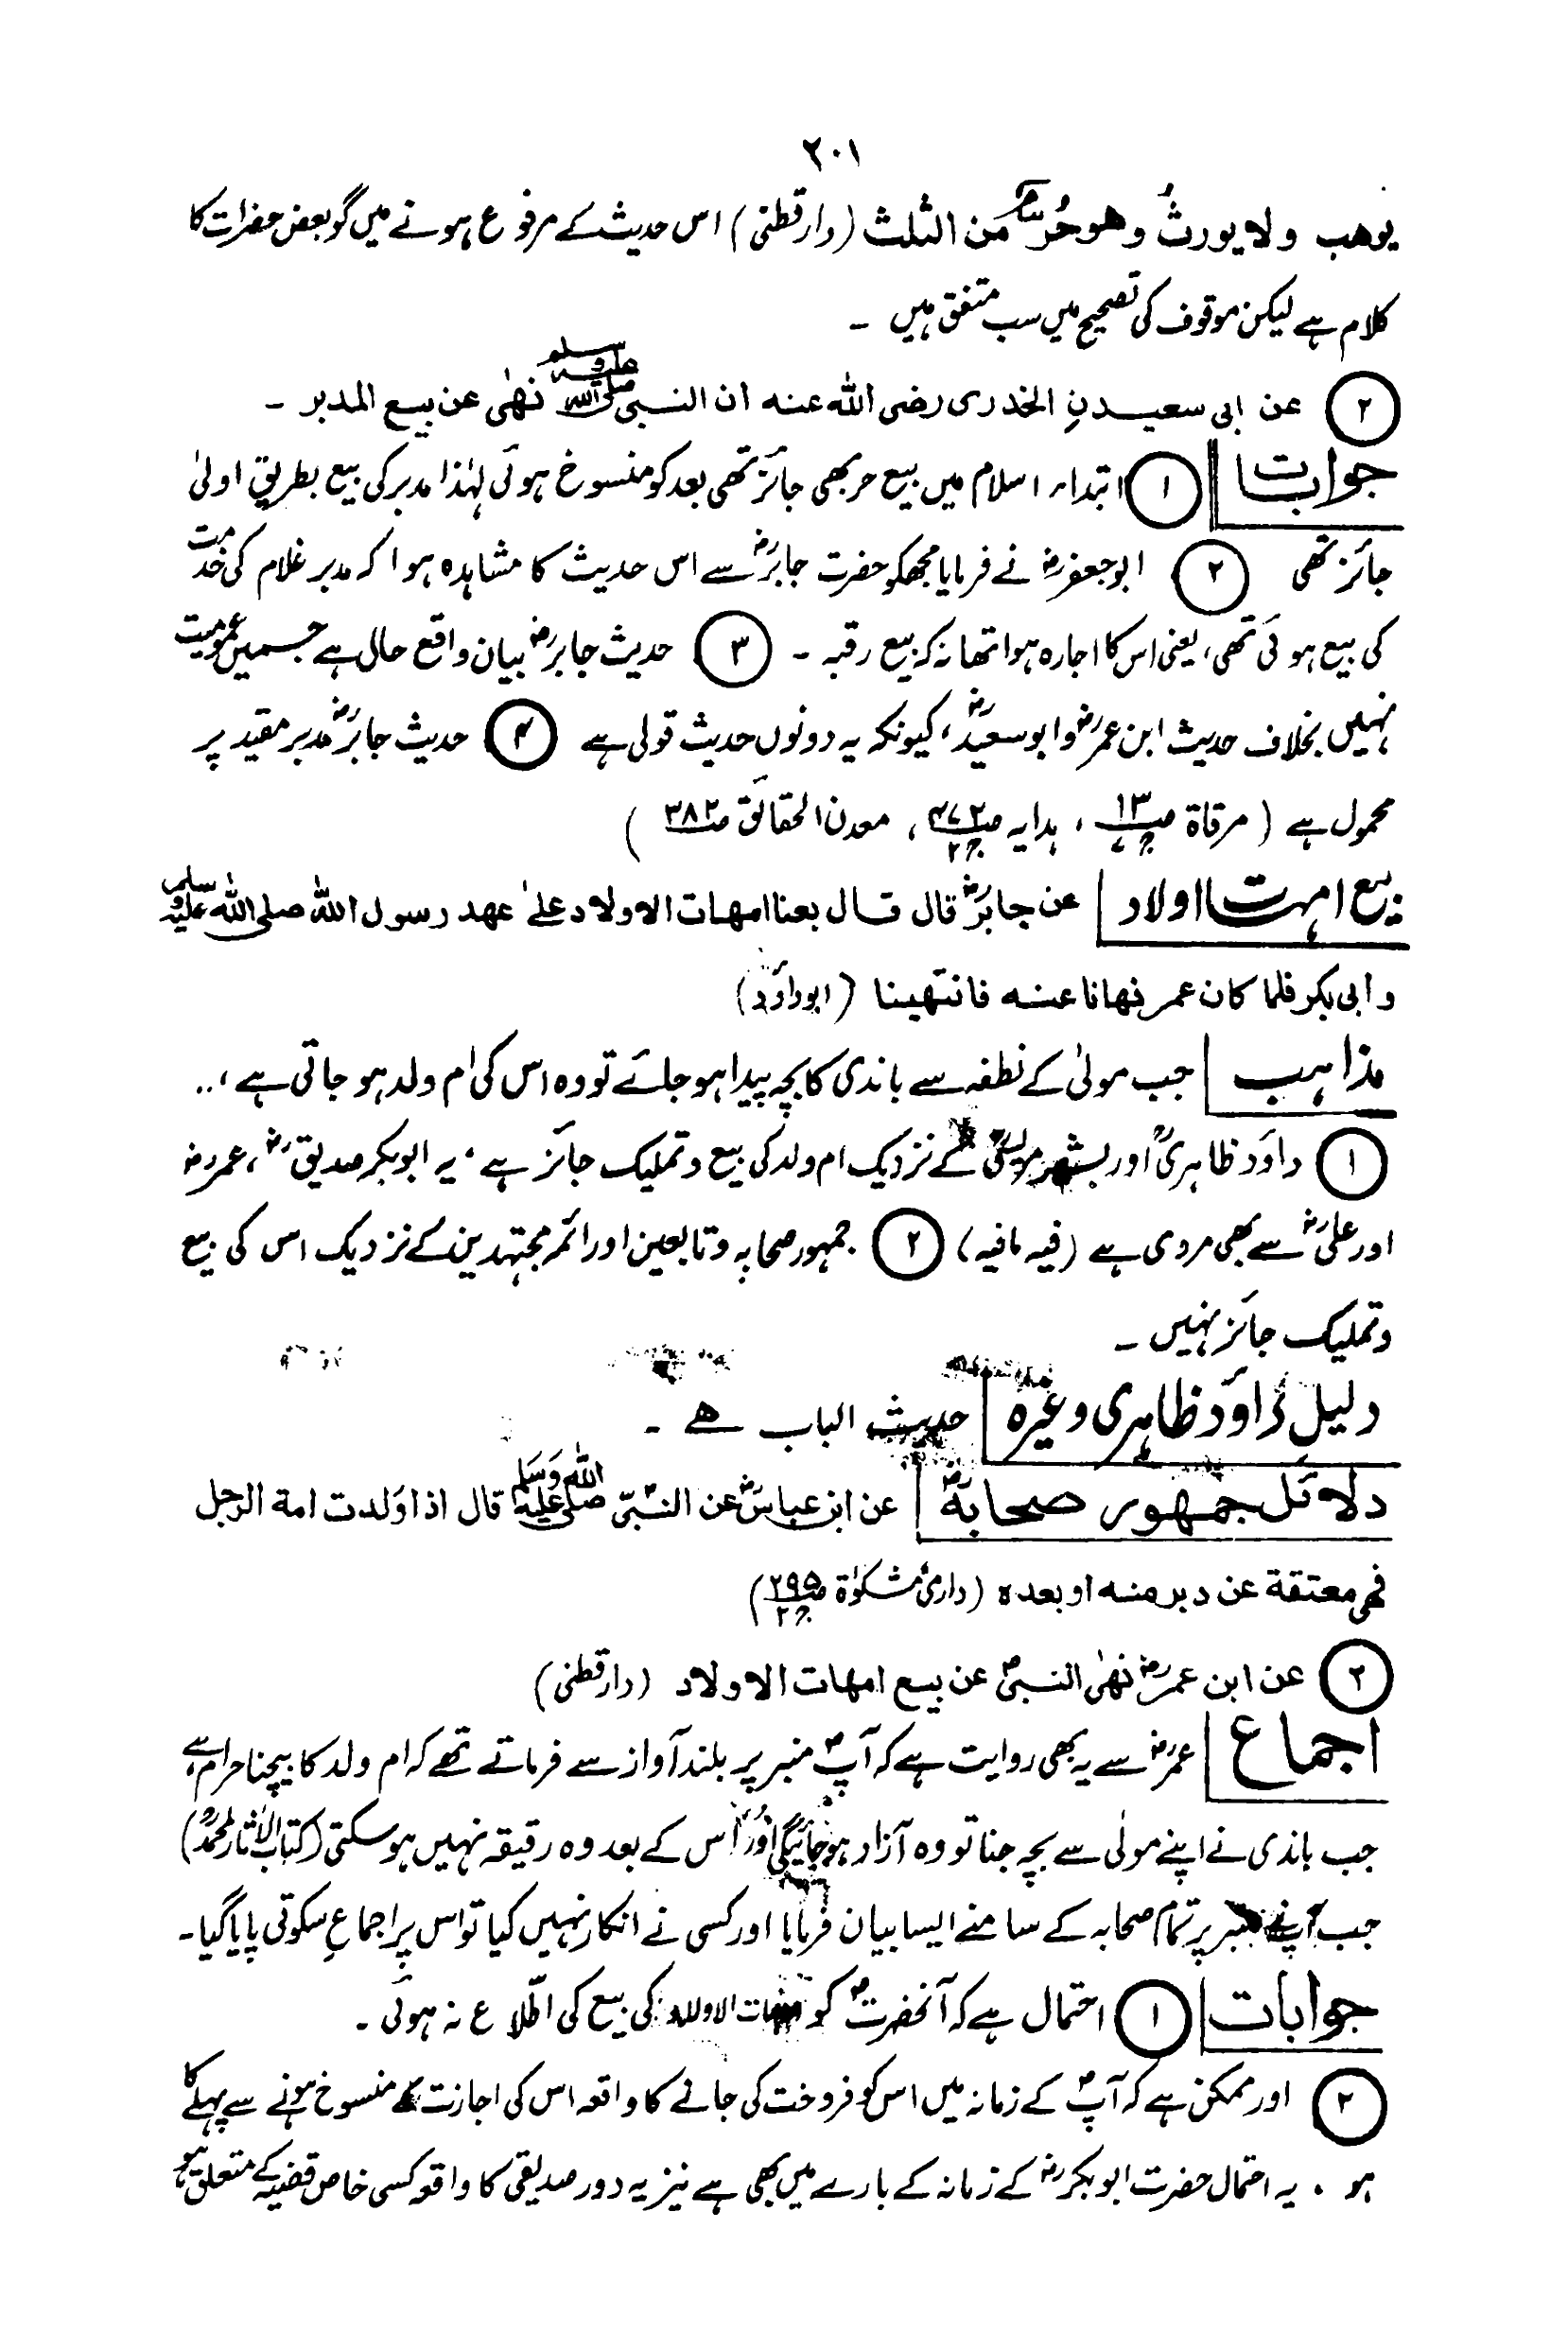 ۲۰۱
یوهب ولا یورثُ وهو حُرٌّ من الثلث (دارقطنی) اس حدیث کے مرفوع ہونے میں گو بعض حضرات کا
کلام ہے لیکن موقوف کی تصحیح میں سب متفق ہیں ۔
۲ عن ابی سعیدنِ الخدری رضی الله عنه ان النبی صلی اللہ علیہ وسلم نهٰی عن بیع المدبر ۔
جوابات ۱ ابتداء اسلام میں بیع حر بھی جائز تھی بعد کو منسوخ ہوئی لہٰذا مدبر کی بیع بطریق اولیٰ
جائز تھی ۲ ابوجعفرؓ نے فرمایا مجھکو حضرت جابرؓ سے اس حدیث کا مشاہدہ ہوا کہ مدبر غلام کی خدمت
کی بیع ہوئی تھی، یعنی اس کا اجارہ ہوا تھا نہ کہ بیع رقبہ ۔ ۳ حدیث جابرؓ بیان واقع حال ہے جسمیں عمومیت
نہیں بخلاف حدیث ابن عمرؓ و ابو سعیدؓ، کیونکہ یہ دونوں حدیث قولی ہے ۴ حدیث جابرؓ مدبر مقید پر
محمول ہے (مرقاة ص۱۳ ج۶، ہدایہ ص۴۷۲ ج۲، معدن الحقائق ص۳۸۲)
بیع امہت اولاد عن جابرؓ قال قال بعنا امهات الاولاد علیٰ عهد رسول الله صلی الله علیه وسلم
وابی بکر فلما کان عمر نهانا عنه فانتهینا (ابوداؤد)
مذاہب جب مولیٰ کے نطفہ سے باندی کا بچہ پیدا ہو جائے تو وہ اس کی ام ولد ہو جاتی ہے،..
۱ داؤد ظاہریؒ اور بشر مریسیؒ کے نزدیک ام ولد کی بیع و تملیک جائز ہے، یہ ابوبکر صدیقؓ، عمرؓ
اور علیؓ سے بھی مروی ہے (فیہ مافیہ) ۲ جمہور صحابہ و تابعین اور ائمہ مجتہدین کے نزدیک اس کی بیع
و تملیک جائز نہیں ۔
دلیل داؤد ظاہری وغیرہ حدیث الباب هے ۔
دلائل جمہور صحابہؓ عن ابن عباسؓ عن النبیّ صلی الله علیه وسلم قال اذا ولدت امة الرجل
فهی معتقة عن دبر منه او بعده (دارمی مشکوٰة ص۲۹۵ ج۲)
۲ عن ابن عمرؓ نهٰی النبیؐ عن بیع امهات الاولاد (دارقطنی)
اجماع عمرؓ سے یہ بھی روایت ہے کہ آپؐ منبر پر بلند آواز سے فرماتے تھے کہ ام ولد کا بیچنا حرام ہے،
جب باندی نے اپنے مولٰی سے بچہ جنا تو وہ آزاد ہو جائیگی اور اس کے بعد وہ رقیقہ نہیں ہوسکتی (کتاب الآثار لمحمدؒ)
جب آپنے منبر پر تمام صحابہ کے سامنے ایسا بیان فرمایا اور کسی نے انکار نہیں کیا تو اس پر اجماعِ سکوتی پایا گیا۔
جوابات ۱ احتمال ہے کہ آنحضرتؐ کو امہات الاولاد کی بیع کی اطّلاع نہ ہوئی ۔
۲ اور ممکن ہے کہ آپؐ کے زمانہ میں اس کو فروخت کی جانے کا واقعہ اس کی اجازت کے منسوخ ہونے سے پہلے کا
ہو ۔ یہ احتمال حضرت ابوبکرؓ کے زمانہ کے بارے میں بھی ہے نیز یہ دور صدیقی کا واقعہ کسی خاص قضیہ کے متعلق ہو